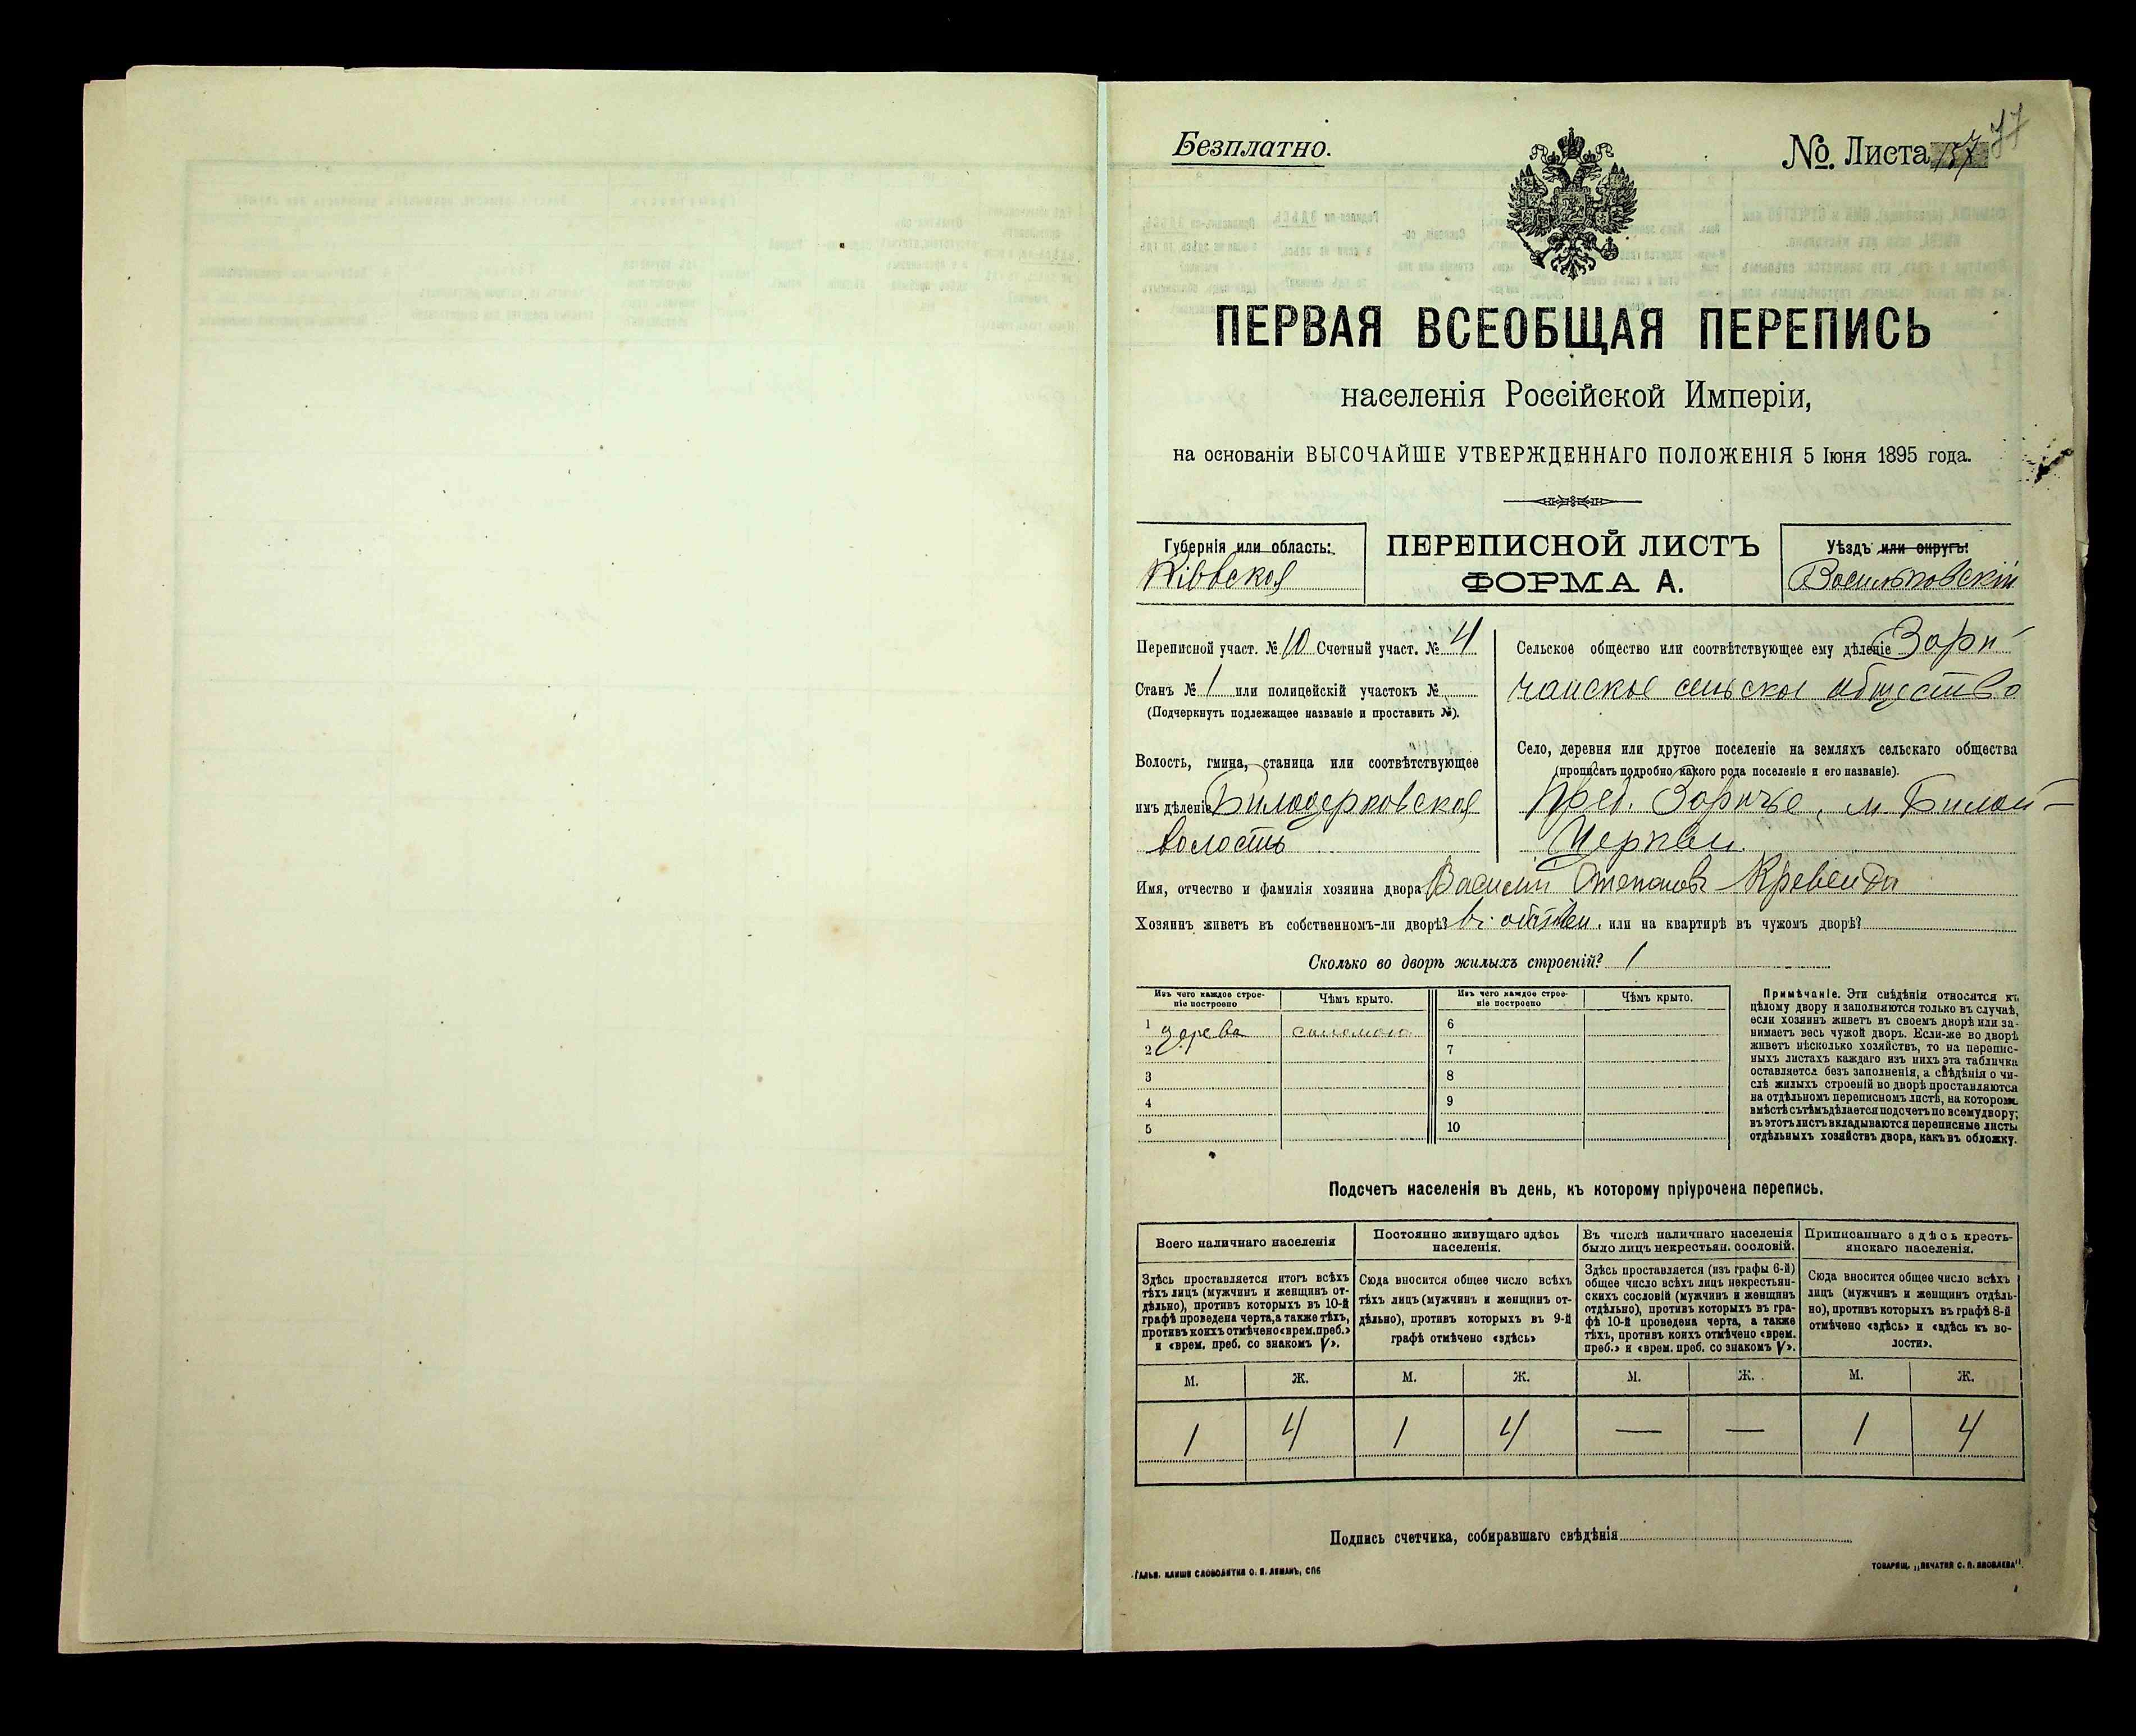 Безплатно.
№. Листа 77
ПЕРВАЯ ВСЕОБЩАЯ ПЕРЕПИСЬ
населенія Россійской Имперіи,
на основаніи ВЫСОЧАЙШЕ УТВЕРЖДЕННАГО ПОЛОЖЕНІЯ 5 Іюня 1895 года.
Губернія или область:
Кіевская
ПЕРЕПИСНОЙ ЛИСТЪ
ФОРМА А.
Уѣздъ или округъ:
Васильковскій
Переписной участ. № 10 Счетный участ. № 4
Станъ № 1 или полицейскій участокъ №
(Подчеркнуть подлежащее названіе и проставить №).
Волость, гмина, станица или соотвѣтствующее
имъ дѣленіе Билоцерковская
волость
Сельское общество или соотвѣтствующее ему дѣленіе Зари-
чанское сельское общество
Село, деревня или другое поселеніе на земляхъ сельскаго общества
(прописать подробно какого рода поселеніе и его названіе).
Пред. Заричье, м. Билой-
Церкви
Имя, отчество и фамилія хозяина двора Василій Степановъ Кревенда
Хозяинъ живетъ въ собственномъ-ли дворѣ? въ или на квартирѣ въ чужомъ дворѣ?
Сколько во дворѣ жилыхъ строеній? 1
Изъ чего каждое строе-
ніе построено
Чѣмъ крыто.
Изъ чего каждое строе-
ніе построено
Чѣмъ крыто.
1 дерева соломою 6
2 7
3 8
4 9
5 10
Примѣчаніе. Эти свѣдѣнія относятся къ
цѣлому двору и заполняются только въ случаѣ,
если хозяинъ живетъ въ своемъ дворѣ или за-
нимаетъ весь чужой дворъ. Если-же во дворѣ
живетъ нѣсколько хозяйствъ, то на перепис-
ныхъ листахъ каждаго изъ нихъ эта табличка
оставляется безъ заполненія, а свѣдѣнія о чи-
слѣ жилыхъ строеній во дворѣ проставляются
на отдѣльномъ переписномъ листѣ, на которомъ
вмѣстѣ съ тѣмъ дѣлается подсчетъ по всему двору;
въ этотъ листъ вкладываются переписные листы
отдѣльныхъ хозяйствъ двора, какъ въ обложку.
Подсчетъ населенія въ день, къ которому пріурочена перепись.
Всего наличнаго населенія
Здѣсь проставляется итогъ всѣхъ
тѣхъ лицъ (мужчинъ и женщинъ от-
дѣльно), противъ которыхъ въ 10-й
графѣ проведена черта, а также тѣхъ,
противъ коихъ отмѣчено «врем. преб.»
и «врем. преб. со знакомъ V».
Постоянно живущаго здѣсь
населенія.
Сюда вносится общее число всѣхъ
тѣхъ лицъ (мужчинъ и женщинъ от-
дѣльно), противъ которыхъ въ 9-й
графѣ отмѣчено «здѣсь»
Въ числѣ наличнаго населенія
было лицъ некрестьян. сословій.
Здѣсь проставляется (изъ графы 6-й)
общее число всѣхъ лицъ некрестьян-
скихъ сословій (мужчинъ и женщинъ
отдѣльно), противъ которыхъ въ гра-
фѣ 10-й проведена черта, а также
тѣхъ, противъ коихъ отмѣчено «врем.
преб.» и «врем. преб. со знакомъ V».
Приписаннаго здѣсь кресть-
янскаго населенія.
Сюда вносится общее число всѣхъ
лицъ (мужчинъ и женщинъ отдѣль-
но), противъ которыхъ въ графѣ 8-й
отмѣчено «здѣсь» и «здѣсь къ во-
лости».
М. Ж. М. Ж. М. Ж. М. Ж.
1 4 1 4 — — 1 4
Подпись счетчика, собиравшаго свѣдѣнія
ГАЛЬВ. КЛИШЕ СЛОВОЛИТНИ О. И. ЛЕМАНЪ, СПб
ТОВАРИЩ. „ПЕЧАТНЯ С. П. ЯКОВЛЕВА".